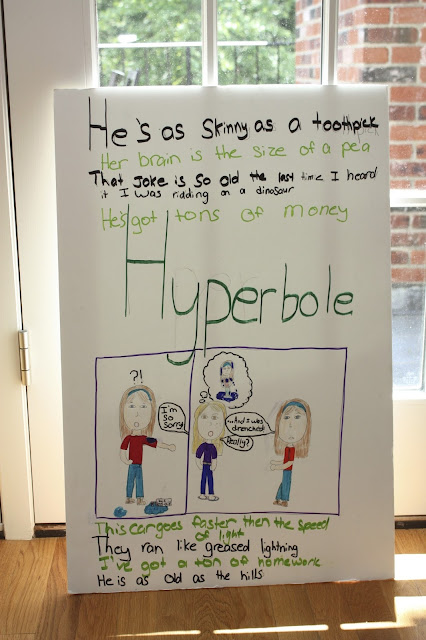 He's as skinny as a toothpick
Her brain is the size of a pea
That joke is so old the last time I heard
it I was ridding on a dinosaur
He's got tons of money
Hyperbole
?!
I'm
so
sorry!
...And I was
drenched!
Really?
This car goes faster then the speed
of light
They ran like greased lightning
I've got a ton of homework
He is as old as the hills